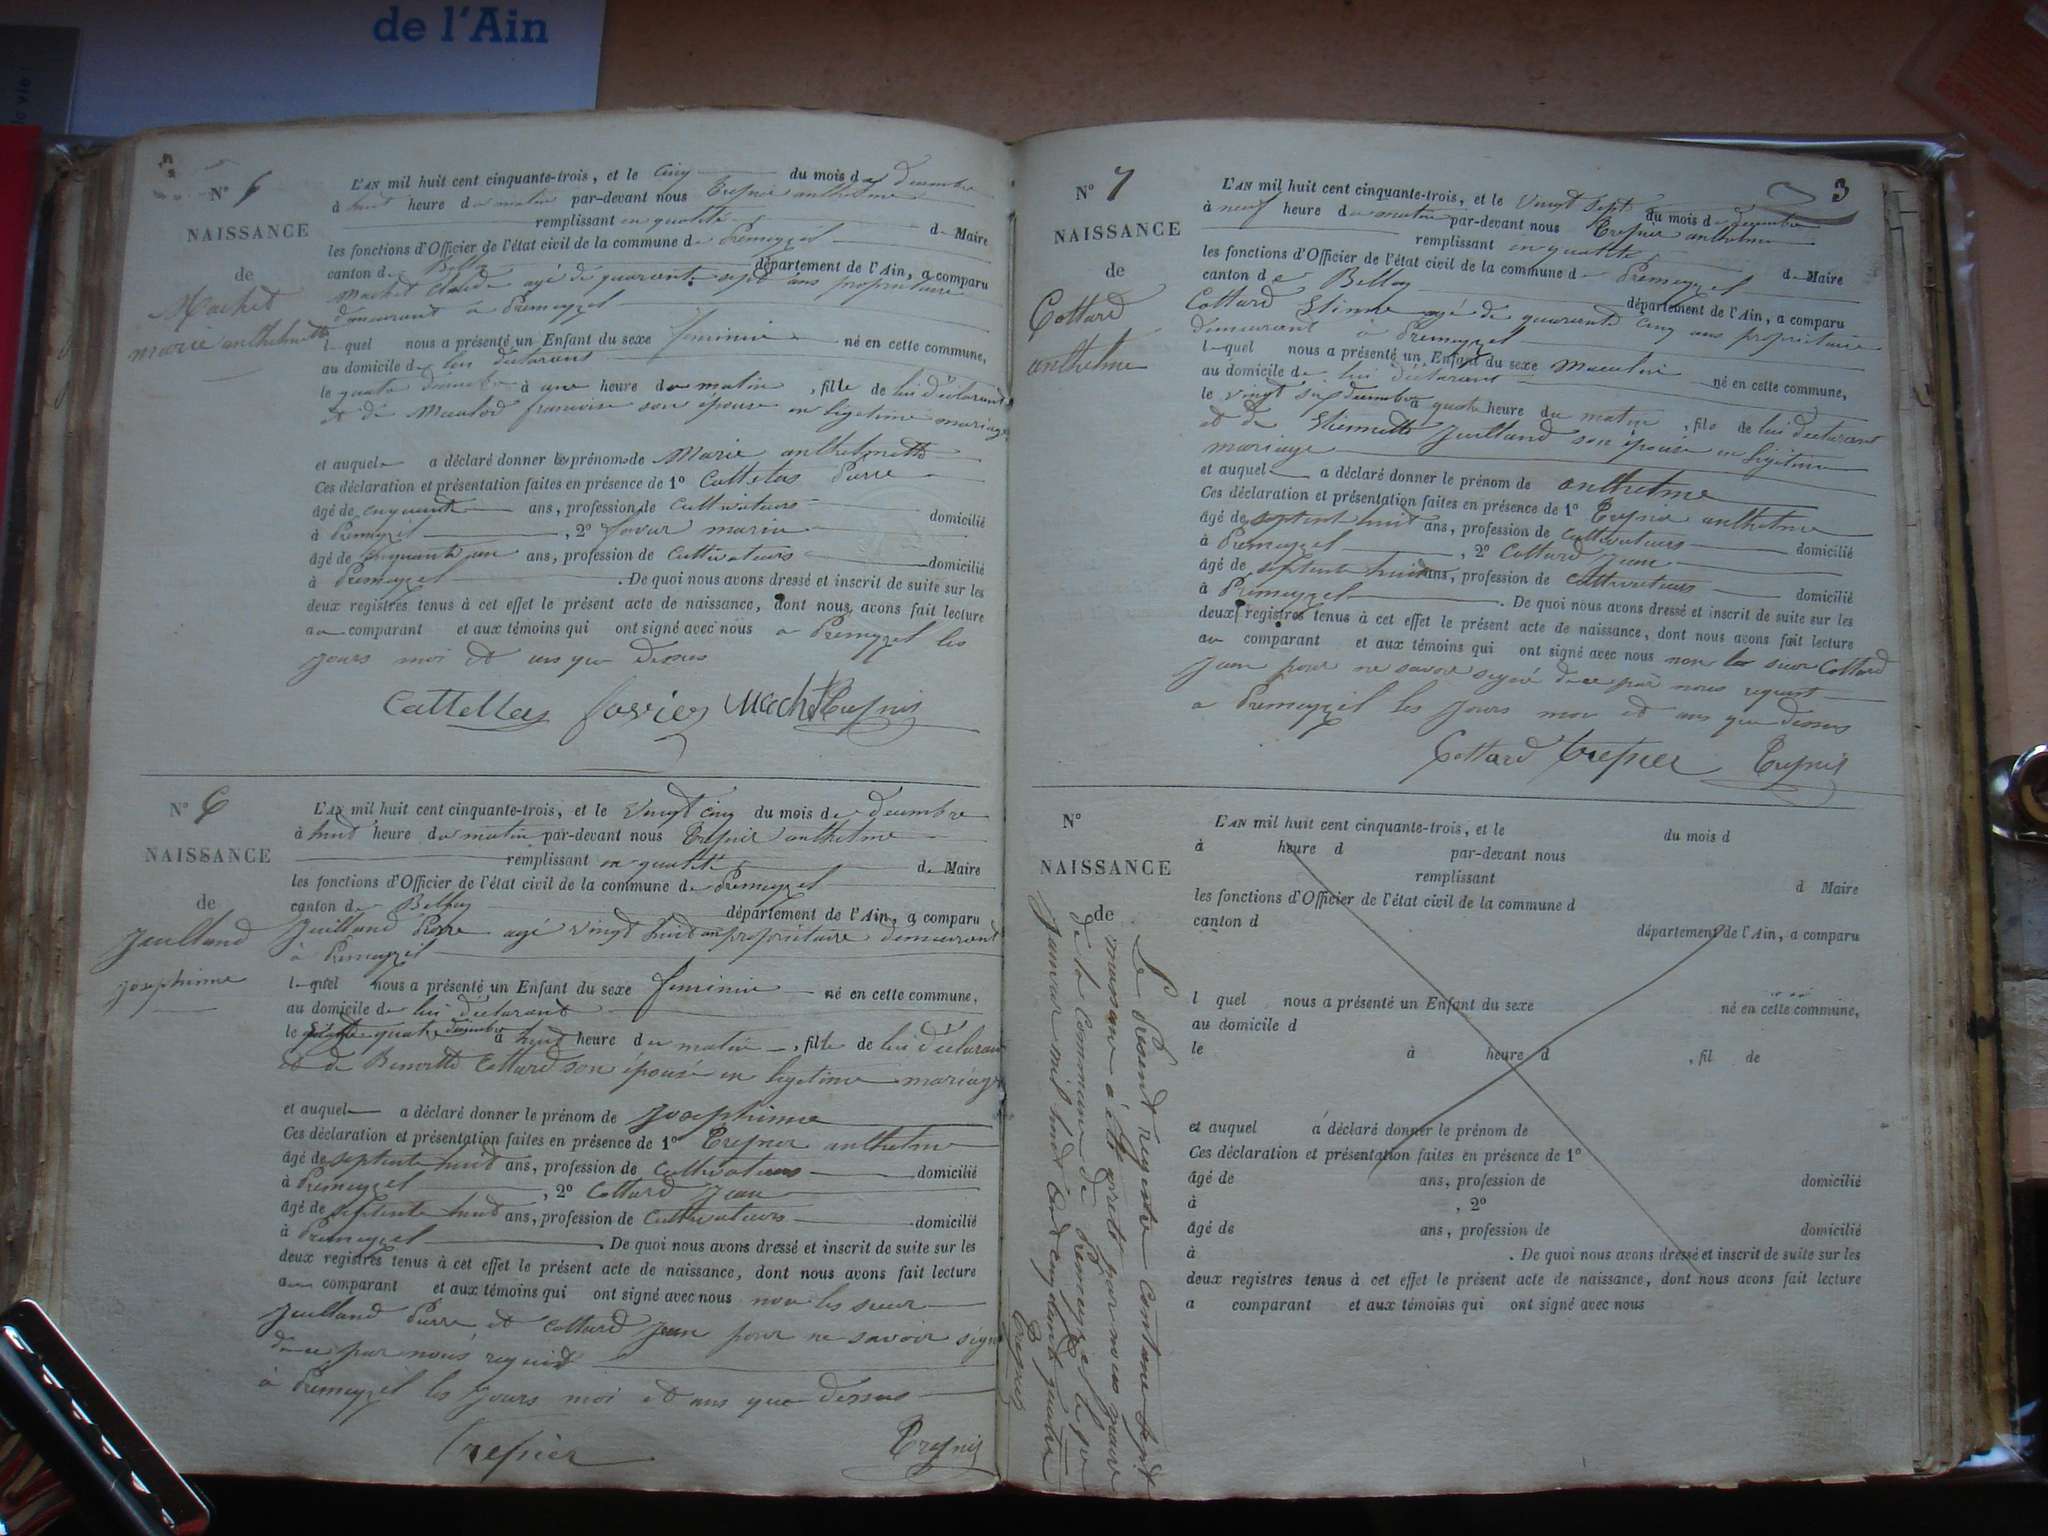 de l'Ain
N° 5
NAISSANCE
de
Machet
marie anthelmette
L'AN mil huit cent cinquante-trois, et le cinq du mois de decembre
à huit heure du matin par-devant nous Trefnié anthelme
remplissant en qualité de Maire
les fonctions d'Officier de l'état civil de la commune de Premeyzel
canton de Belley département de l'Ain, a comparu
Machet Claude agé de quarante sept ans propriétaire
demeurant à Premeyzel
lequel nous a présenté un Enfant du sexe feminin né en cette commune,
au domicile de lui déclarant
le quatre decembre à une heure du matin, fille de lui déclarant
et de francoise son épouse en ligetime mariage
et auquel a déclaré donner les prénom de Marie anthelmette
Ces déclaration et présentation faites en présence de 1° Cattelas Pierre
âgé de cinquante ans, profession de Cultivateurs domicilié
à Premeyzel, 2° favier marin
âgé de cinquante un ans, profession de Cultivateurs domicilié
à Premeyzel. De quoi nous avons dressé et inscrit de suite sur les
deux registres tenus à cet effet le présent acte de naissance, dont nous avons fait lecture
au comparant et aux témoins qui ont signé avec nous a Premeyzel les
jours moi et ans que dessus
Cattellas favier Machet Trefnié
N° 6
NAISSANCE
de
Juilland
Josephinne
L'AN mil huit cent cinquante-trois, et le vingt cinq du mois de decembre
à huit heure du matin par-devant nous Trefnié anthelme
remplissant en qualité de Maire
les fonctions d'Officier de l'état civil de la commune de Premeyzel
canton de Belley département de l'Ain, a comparu
Juilland Pierre agé vingt huit an propriétaire demeurant
à Premeyzel
lequel nous a présenté un Enfant du sexe feminin né en cette commune,
au domicile de lui déclarant
le quatre decembre à huit heure du matin, fille de lui déclarant
et de Benoitte Cottard son épouse en ligetime mariage
et auquel a déclaré donner le prénom de Josephinne
Ces déclaration et présentation faites en présence de 1° Trefnier anthelme
âgé de septente huit ans, profession de Cultivateurs domicilié
à Premeyzel, 2° Cottard Jean
âgé de septente huit ans, profession de Cultivateurs domicilié
à Premeyzel. De quoi nous avons dressé et inscrit de suite sur les
deux registres tenus à cet effet le présent acte de naissance, dont nous avons fait lecture
au comparant et aux témoins qui ont signé avec nous non les sieur
Juilland Pierre et Cottard Jean pour ne savoir signé
de ce par nous requis
à Premeyzel les jours moi et ans que dessus
Trefnier Trefnié
3
N° 7
NAISSANCE
de
Cottard
anthelme
L'AN mil huit cent cinquante-trois, et le vingt sept du mois de decembre
à neuf heure du matin par-devant nous Trefnier anthelme
remplissant en qualité de Maire
les fonctions d'Officier de l'état civil de la commune de Premeyzel
canton de Belley département de l'Ain, a comparu
Cottard Etienne agé de quarente cinq ans propriétaire
demeurant à Premeyzel
lequel nous a présenté un Enfant du sexe Masculin né en cette commune,
au domicile de lui déclarant
le vingt six decembre à quatre heure du matin, fils de lui declarant
et de Etiennette Juilland son épouse en ligetime
mariage
et auquel a déclaré donner le prénom de anthelme
Ces déclaration et présentation faites en présence de 1° Trefnié anthelme
âgé de septent huit ans, profession de Cultivateurs domicilié
à Premeyzel, 2° Cottard Jean
âgé de septent huit ans, profession de Cultivateurs domicilié
à Premeyzel. De quoi nous avons dressé et inscrit de suite sur les
deux registres tenus à cet effet le présent acte de naissance, dont nous avons fait lecture
au comparant et aux témoins qui ont signé avec nous non le sieur Cottard
Jean pour ne savoir signé de ce par nous requist
a Premeyzel les jours moi et ans que dessus
Cottard Trefnier Trefnié
N°
NAISSANCE
de
L'AN mil huit cent cinquante-trois, et le du mois d
à heure d par-devant nous
remplissant d Maire
les fonctions d'Officier de l'état civil de la commune d
canton d département de l'Ain, a comparu
l quel nous a présenté un Enfant du sexe né en cette commune,
au domicile d
le à heure d , fil de
et auquel a déclaré donner le prénom de
Ces déclaration et présentation faites en présence de 1°
âgé de ans, profession de domicilié
à , 2°
âgé de ans, profession de domicilié
à . De quoi nous avons dressé et inscrit de suite sur les
deux registres tenus à cet effet le présent acte de naissance, dont nous avons fait lecture
a comparant et aux témoins qui ont signé avec nous
Le Present registre contenant sept
naissance a été arreté par nous maire
de la commune de Premeyzel le
Janvier mil huit cent cinquante quatre
Trefnié